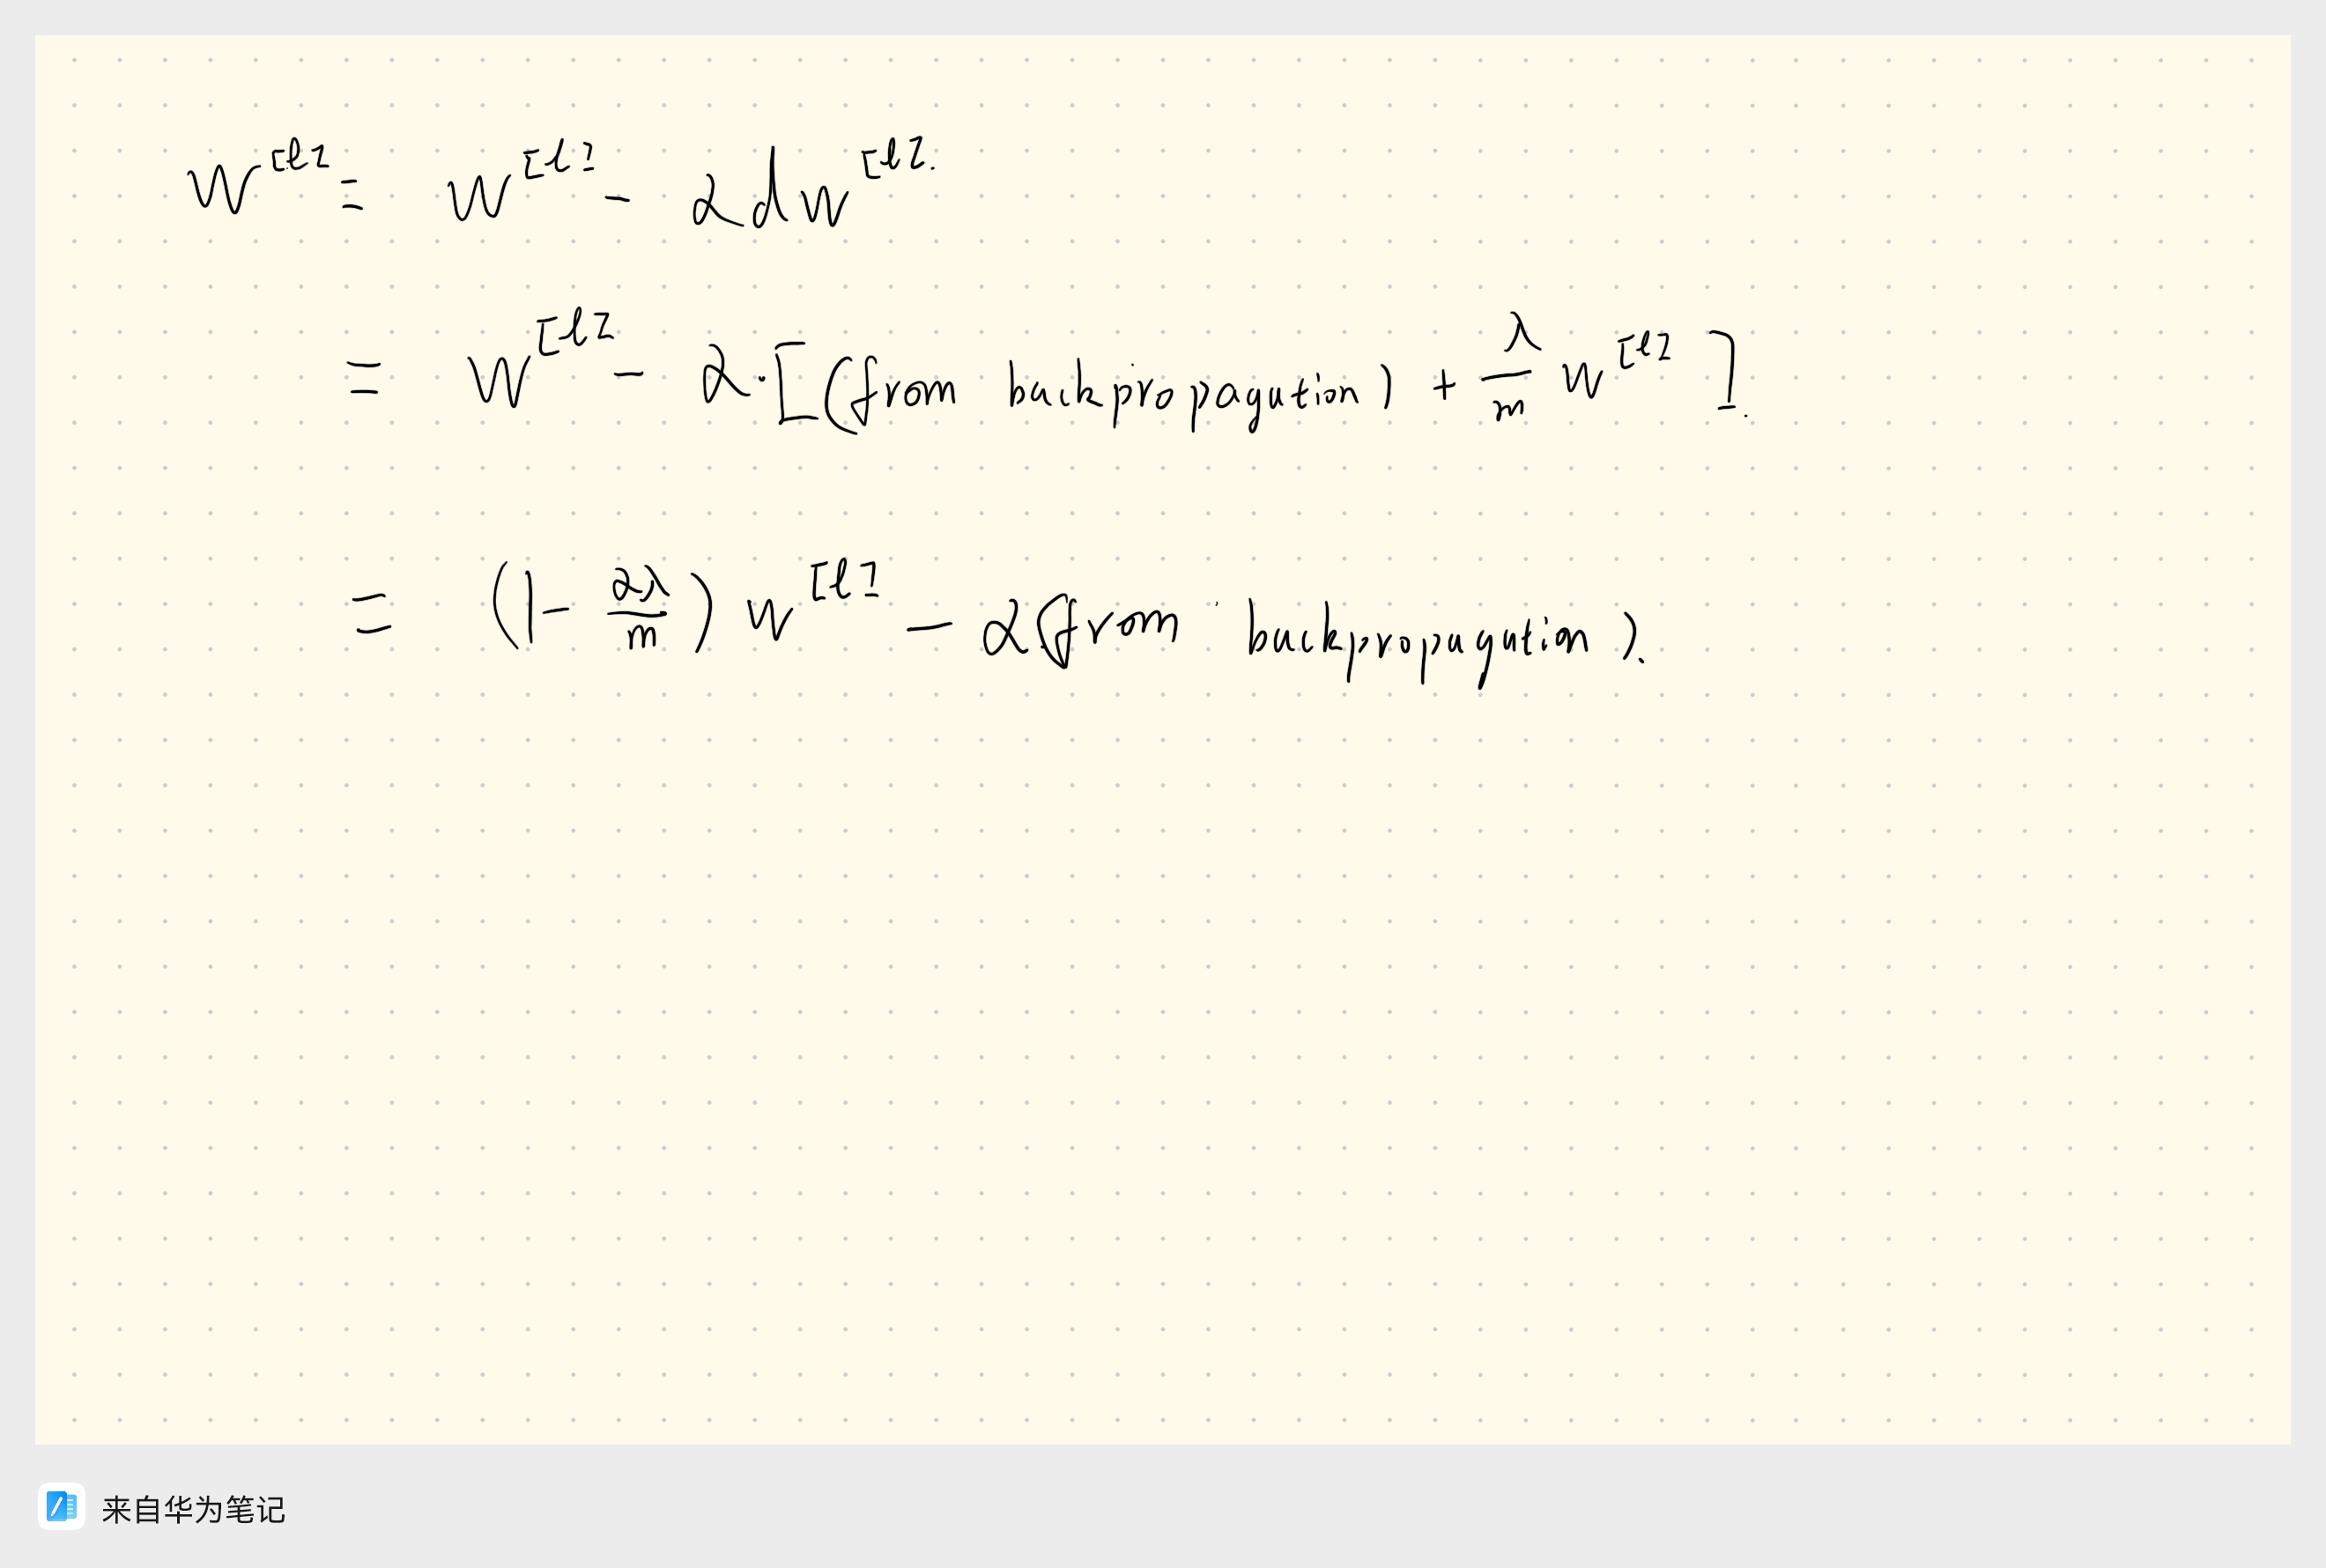 W^[l] = W^[l] - αdW^[l].
= W^[l] - α·[(from backpropagation) + λ/m W^[l]].
= (1 - αλ/m) W^[l] - α(from backpropagation).
来自华为笔记